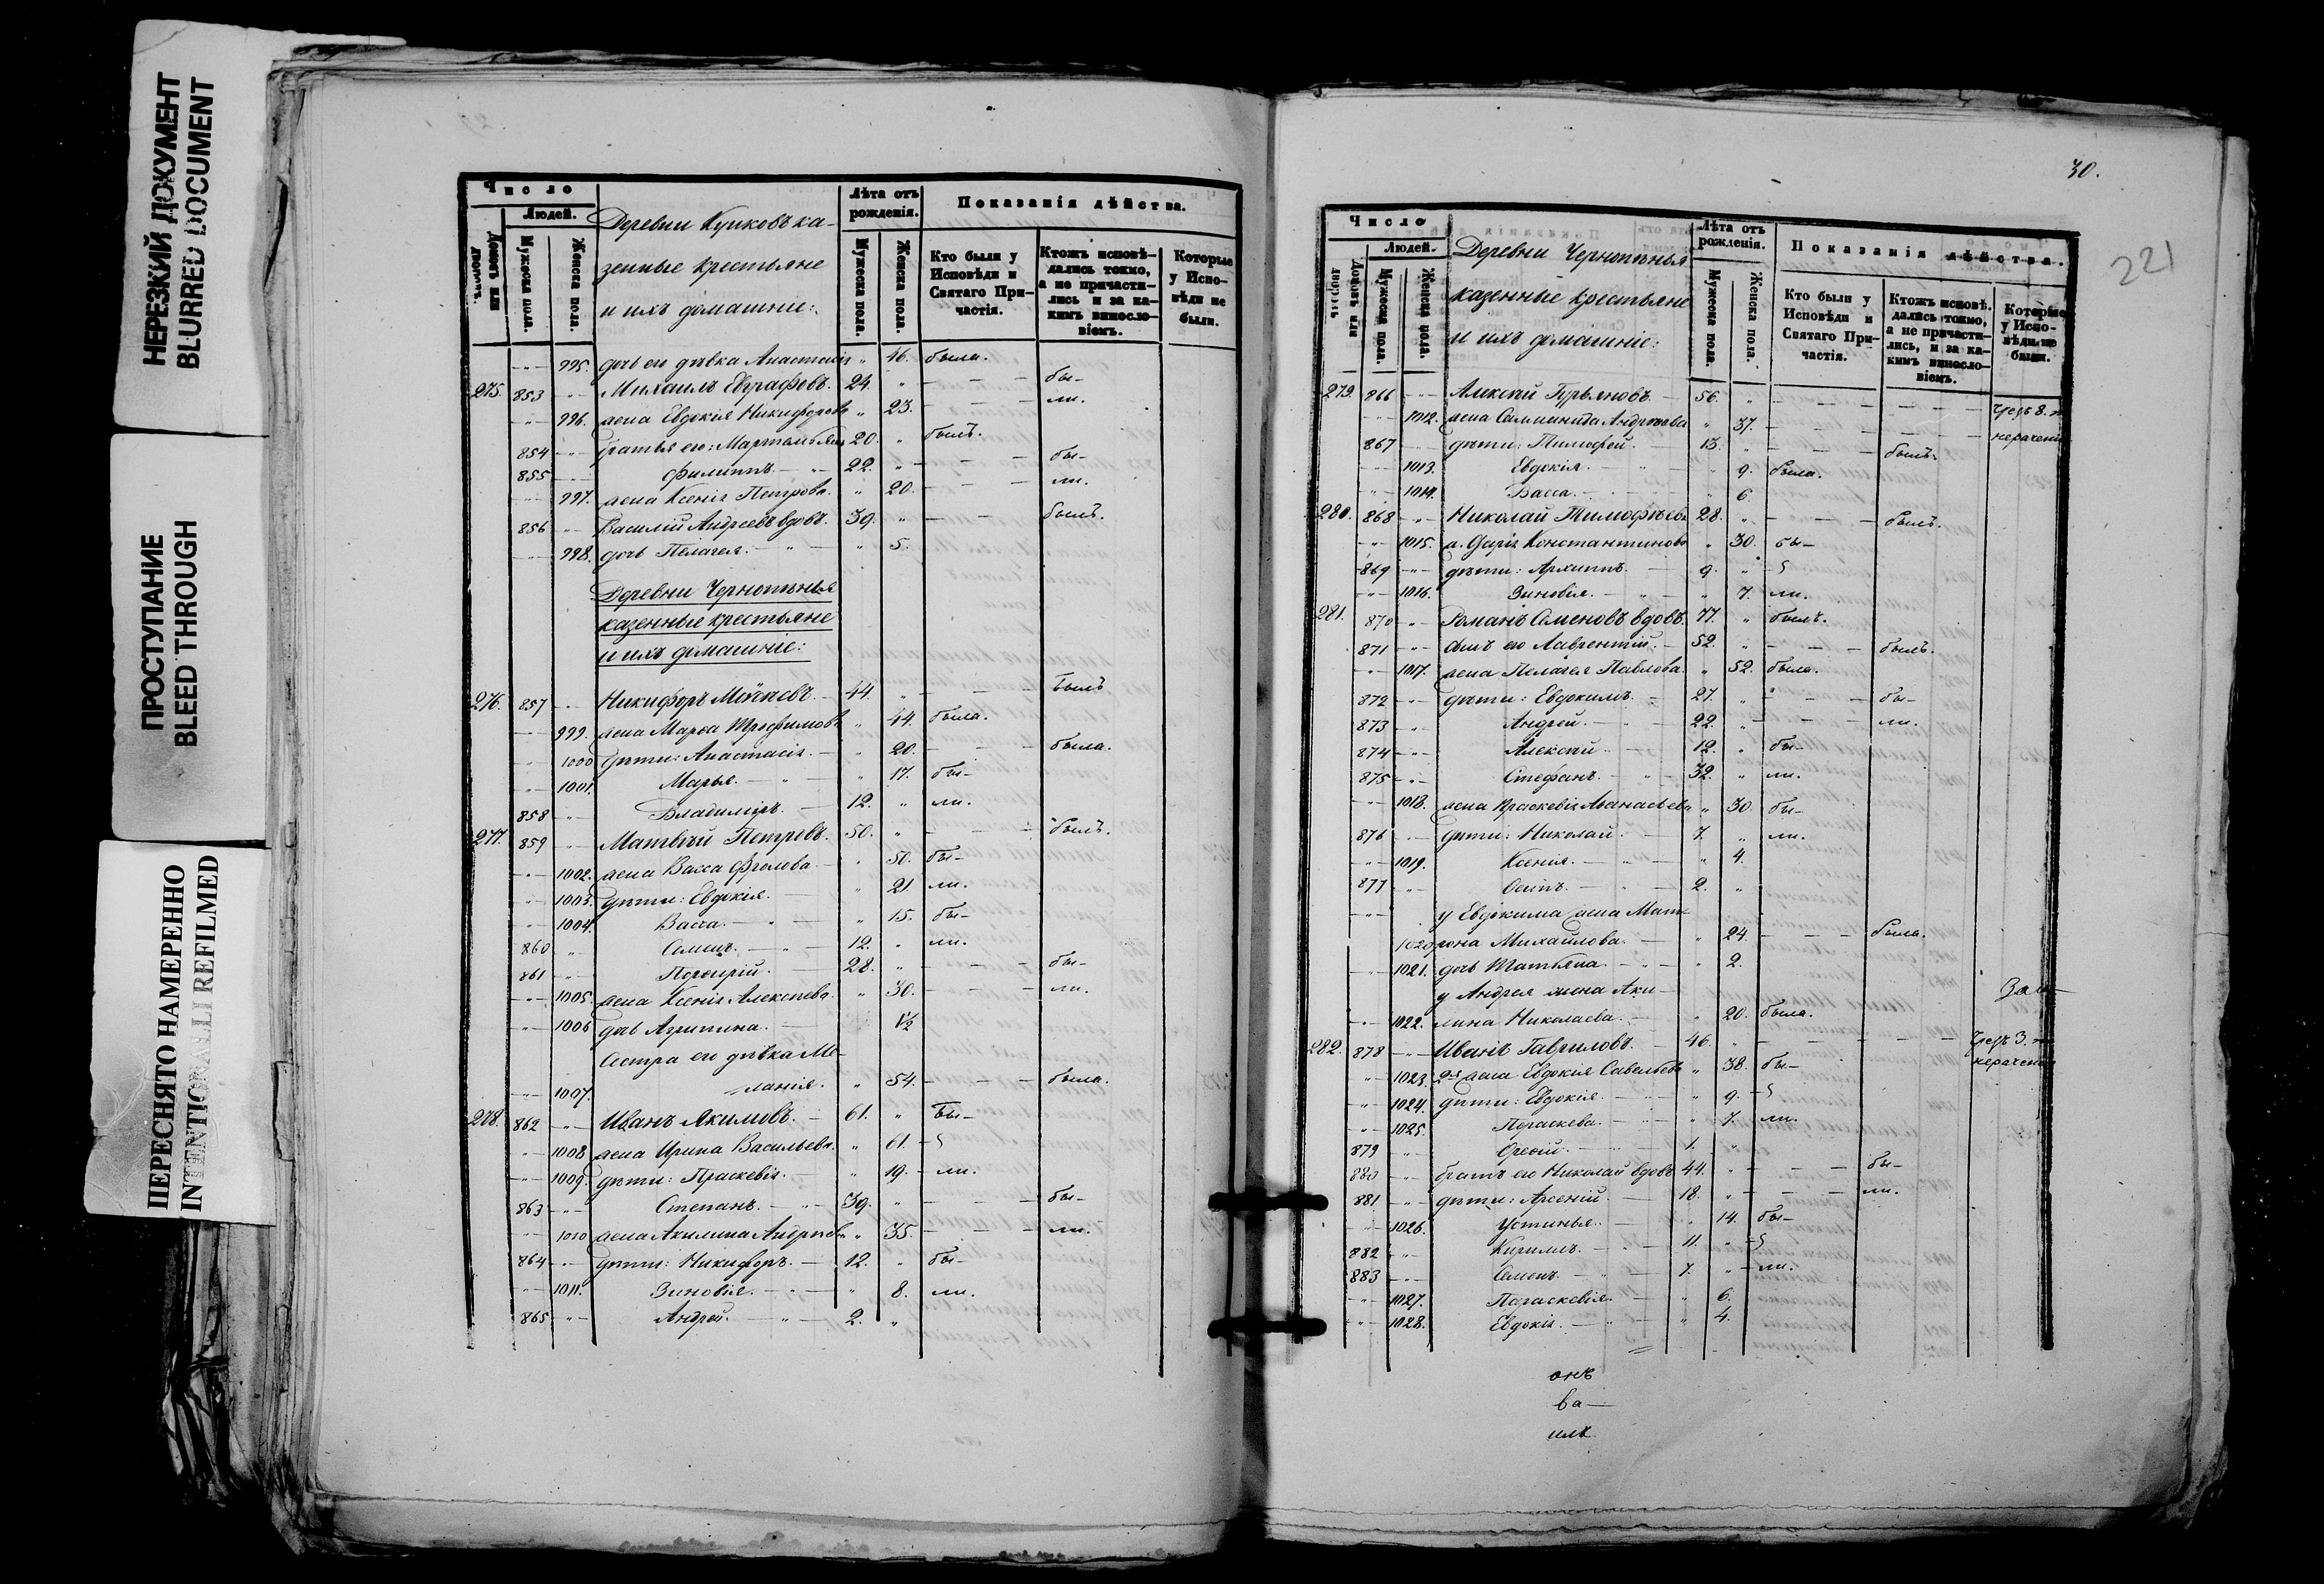 НЕРЕЗКИЙ ДОКУМЕНТ
BLURRED DOCUMENT
ПРОСТУПАНИЕ
BLEED THROUGH
ПЕРЕСНЯТО НАМЕРЕННО
INTENTIONALLI REFILMED
Число
Людей.
Домовъ или
Мужеска пола.
Женска пола.
Деревни Куниковъ ка-
зенные крестьяне
и ихъ домашніе:
Лѣта отъ рожденія.
Мужеска пола.
Женска пола.
Показанія дѣйства.
Кто были у Исповѣди и Святаго При-частія.
Ктожъ исповѣ-дались токмо, а не причасти-лись и за ка-кимъ винословіемъ.
Которые у Испо-вѣди не были.
995. дочь его дѣвка Анастасія " 46. была.
275. 853 Михаилъ Евграфовъ. 24. " бы-
996. жена Евдокія Никифорова " 23. ли.
854 братья его: 20. " былъ.
855 Филиппъ. 22. " бы-
997. жена Ксенія Петрова. " 20. ли.
856 Василій Андреевъ вдовъ. 39. " былъ.
998. дочь Пелагея. " 5.
Деревни Чернопенья
казенные крестьяне
и ихъ домашніе:
276. 857 Никифоръ 44. " былъ
999. жена Марѳа Трофимова " 44. была.
1000 дѣти: Анастасія. " 20. была.
1001. Марья. " 17. бы-
858 Владиміръ. 12. " ли.
277. 859 Матвѣй Петровъ. 50. " былъ.
1002. жена Васса Фролова. " 50. бы-
1003. дѣти: Евдокія. " 21 ли.
1004. Васса. " 15. бы-
860 Семенъ. 12. " ли.
861 Порфирій. 28. " бы-
1005. жена Ксенія Алексѣева. " 30. ли.
1006 дочь Агрипина. 1½
Сестра его дѣвка Ме-
1007. ланія. " 54. была.
278. 862 Иванъ Якимовъ. 61. " бы-
1008 жена Ирина Васильева. " 61.
1009. дѣти: Праскевія. " 19. ли.
863 Степанъ. 39. " бы-
1010 жена Акилина Андреева " 35. ли.
864 дѣти: Никифоръ. 12. " бы-
1011. Зиновія. " 8. ли.
865 Андрей. 2. "
30.
221
Число
Людей.
Домовъ или
Мужеска пола.
Женска пола.
Деревни Чернопенья
казенные крестьяне
и ихъ домашніе:
Лѣта отъ рожденія.
Мужеска пола.
Женска пола.
Показанія дѣйства.
Кто были у Исповѣди и Святаго При-частія.
Ктожъ исповѣ-дались токмо, а не причасти-лись, и за ка-кимъ винословіемъ.
Которые у Испо-вѣди не были.
279. 866 Алексѣй Гурьяновъ 56. " чрезъ 8. л.
1012. жена " 37. нераченію
867 дѣти: Тимофей. 13. " былъ.
1013. Евдокія. " 9. была.
1014. Васса. " 6.
280. 868 Николай Тимофѣевъ 28. " былъ.
1015. ж. Дарія Константинова " 30. бы-
869 дѣти: Архиппъ. 9. "
1016. Зиновія. " 7. ли.
281. 870 Романъ Семеновъ вдовъ. 77. " былъ.
871 сынъ его Лаврентій. 52. " былъ.
1017. жена Пелагея Павлова. " 52. была.
872 дѣти: Евдокимъ. 27. " бы-
873 Андрей. 22. " ли.
874 Алексѣй. 12. " бы-
875 Стефанъ. 32. " ли.
1018. жена Праскевія Аѳанасьева " 30. бы-
876 дѣти: Николай. 7. " ли.
1019. Ксенія. " 4.
877 Осипъ. 2. "
у Евдокима жена Мат-
1020 рона Михайлова. " 24. была.
1021. дочь Татьяна. " 2.
у Андрея жена Аки-
1022. лина Николаева. " 20. была.
282. 878 Иванъ Гавриловъ. 46. " чрезъ 3. л.
нераченію
1023. 2я жена Евдокія Савельева " 38. бы-
1024. дѣти: Евдокія. " 9.
1025. Параскева. " 7. ли.
879 1. "
880 братъ его Николай вдовъ 44. " бы-
881 дѣти: Арсеній. 18. " ли.
1026. Устинья. " 14. бы-
882 Кирилъ. 11. "
883 Семенъ. 7. " ли.
1027. Параскевія. " 6.
1028. Евдокія. " 4.
онъ
ва-